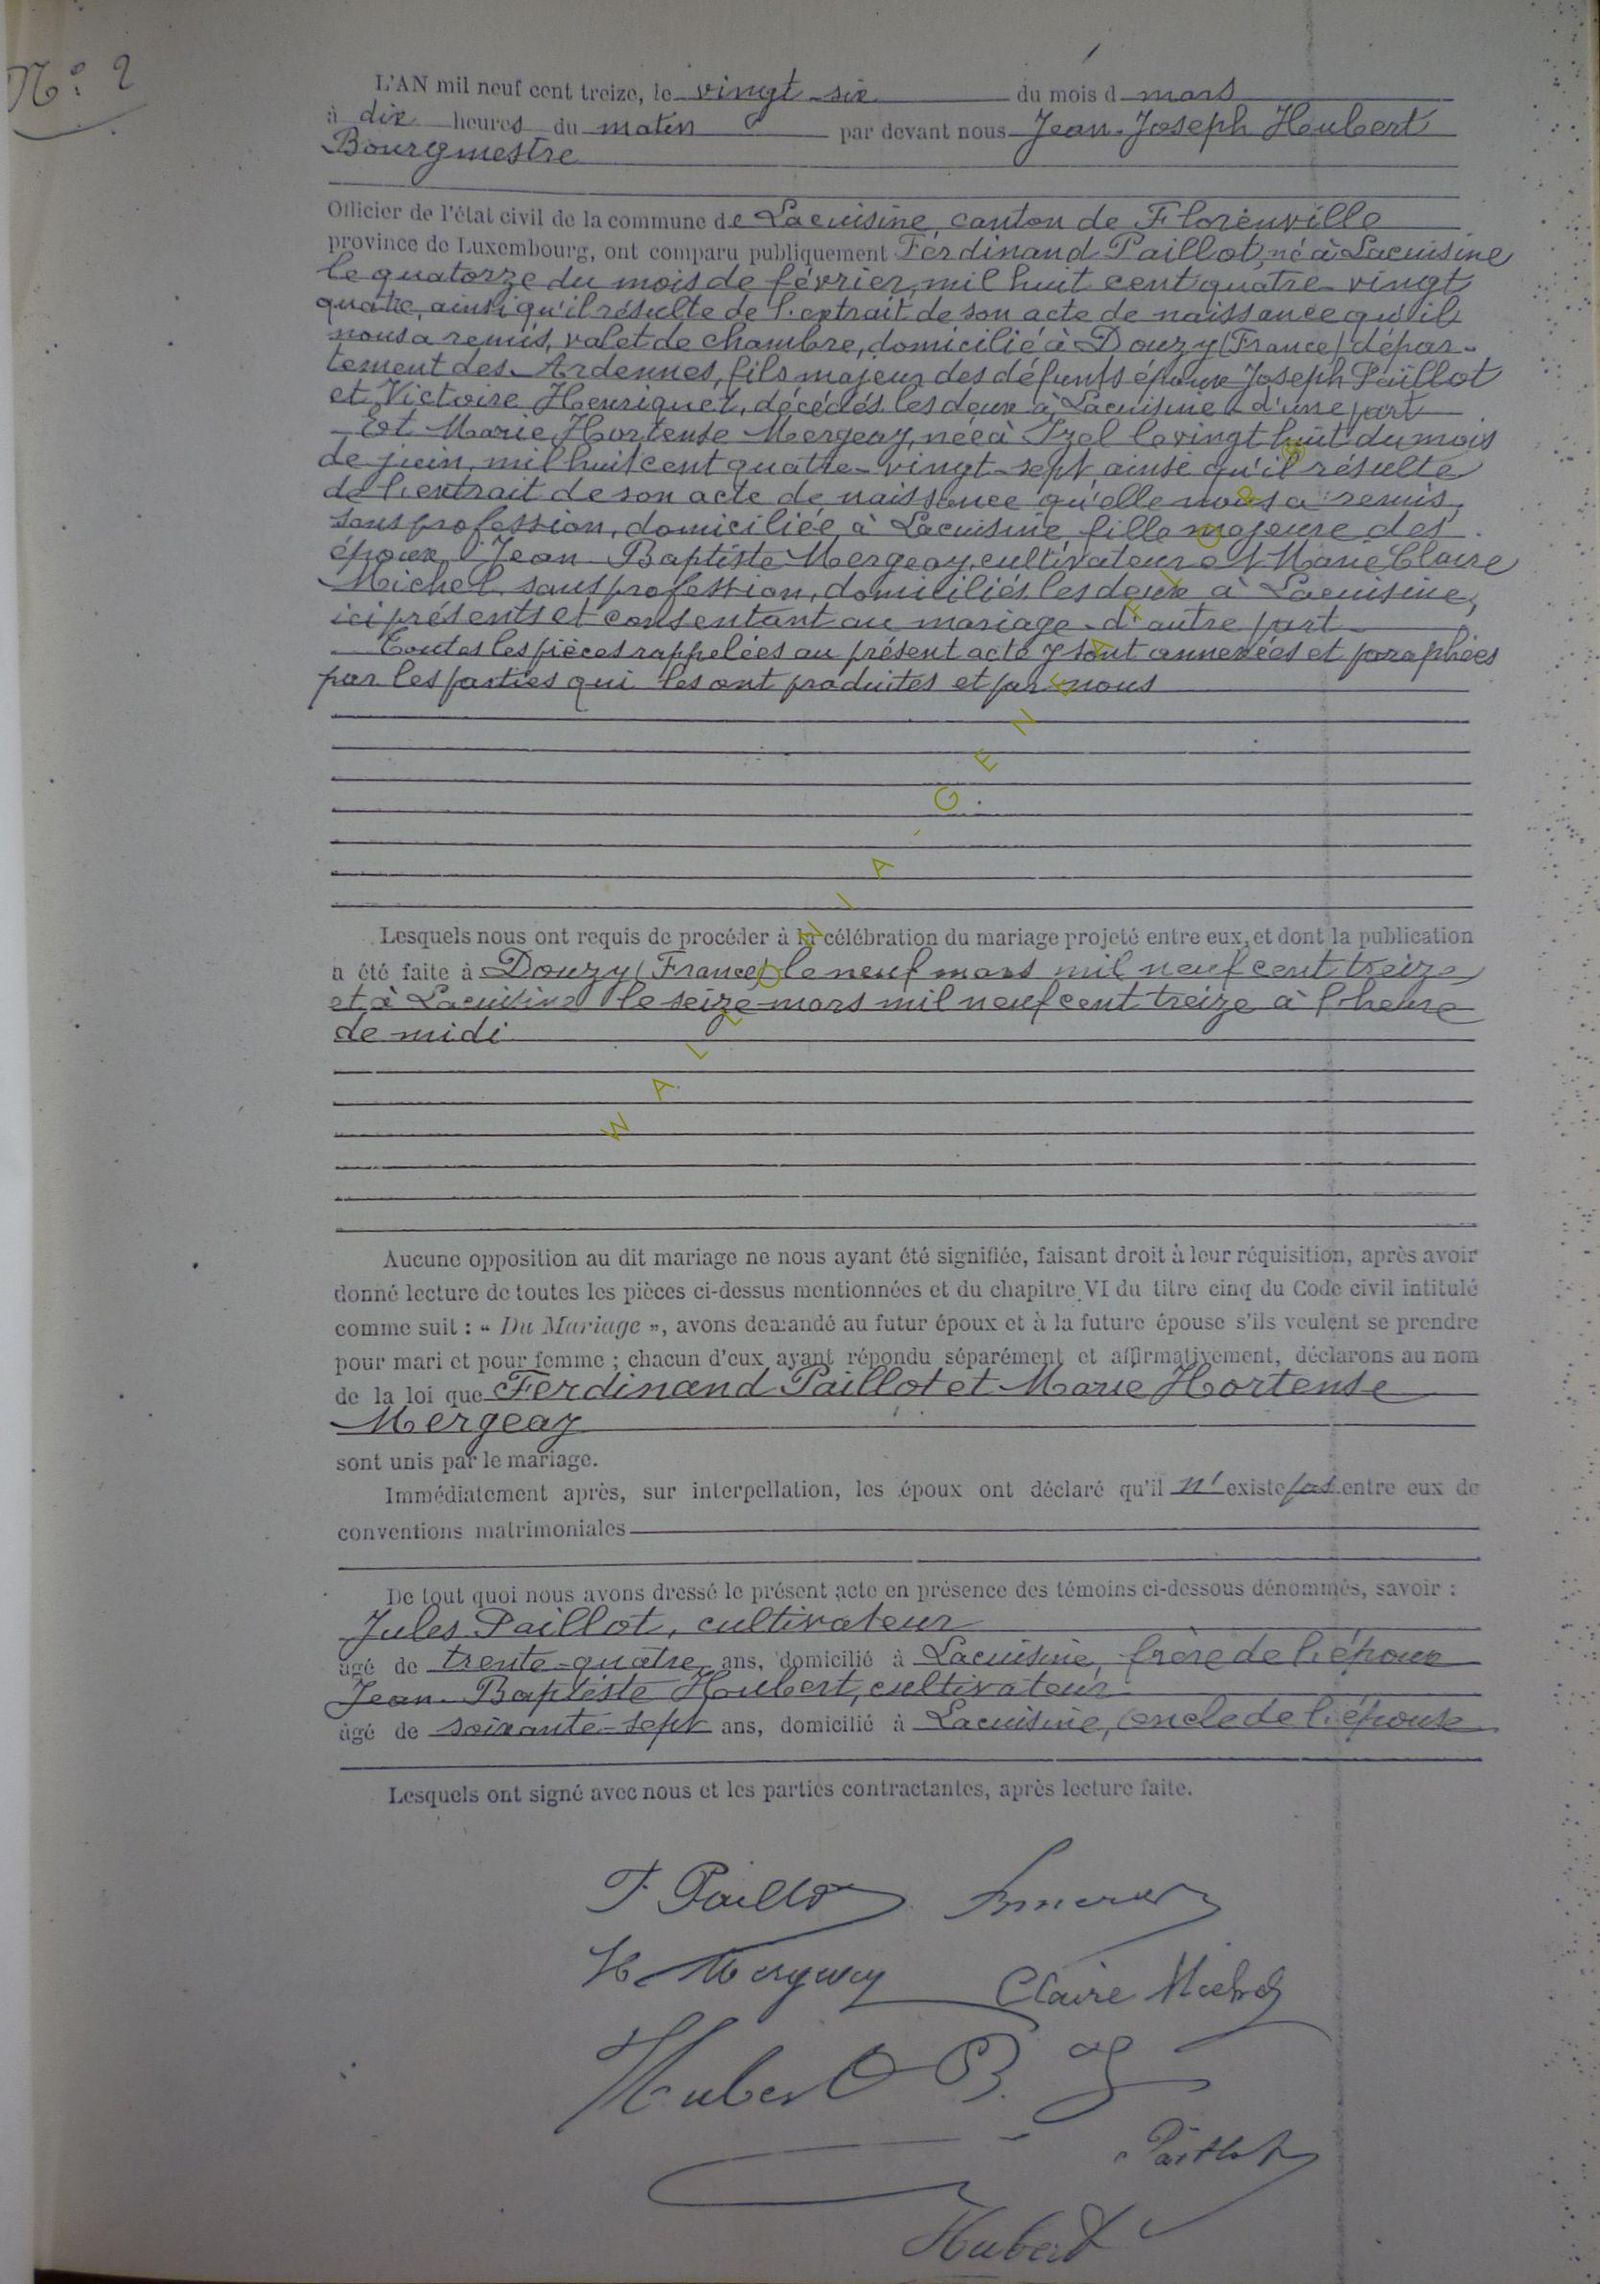 N° 2
L'AN mil neuf cent treize, le vingt-six du mois d mars
à dix heures du matin par devant nous Jean-Joseph Hubert
Bourgmestre
Officier de l'état civil de la commune de Lacuisine, canton de Florenville
province de Luxembourg, ont comparu publiquement Ferdinand Paillot, né à Lacuisine
le quatorze du mois de février, mil huit cent quatre-vingt
quatre, ainsi qu'il résulte de l'extrait de son acte de naissance qu'il
nous a remis, valet de chambre, domicilié à Douzy (France) dépar-
tement des Ardennes, fils majeur des défunts époux Joseph Paillot
et Victoire Henriquet, décédés les deux à Lacuisine - d'une part
- Et Marie Hortense Mergeay, née à Izel le vingt huit du mois
de juin, mil huit cent quatre-vingt-sept, ainsi qu'il résulte
de l'extrait de son acte de naissance qu'elle nous a remis,
sans profession, domiciliée à Lacuisine, fille majeure des
époux Jean-Baptiste Mergeay, cultivateur et Marie Claire
Michel, sans profession, domiciliés les deux à Lacuisine,
ici présents et consentant au mariage - d'autre part -
- Toutes les pièces rappelées au présent acte y sont annexées et paraphées
par les parties qui les ont produites et par nous
Lesquels nous ont requis de procéder à la célébration du mariage projeté entre eux, et dont la publication
a été faite à Douzy (France) le neuf mars mil neuf cent treize
et à Lacuisine le seize mars mil neuf cent treize à l'heure
de midi
Aucune opposition au dit mariage ne nous ayant été signifiée, faisant droit à leur réquisition, après avoir
donné lecture de toutes les pièces ci-dessus mentionnées et du chapitre VI du titre cinq du Code civil intitulé
comme suit : « Du Mariage », avons demandé au futur époux et à la future épouse s'ils veulent se prendre
pour mari et pour femme ; chacun d'eux ayant répondu séparément et affirmativement, déclarons au nom
de la loi que Ferdinand Paillot et Marie Hortense
Mergeay
sont unis par le mariage.
Immédiatement après, sur interpellation, les époux ont déclaré qu'il n'existe pas entre eux de
conventions matrimoniales
De tout quoi nous avons dressé le présent acte en présence des témoins ci-dessous dénommés, savoir :
Jules Paillot, cultivateur
âgé de trente-quatre ans, domicilié à Lacuisine, frère de l'époux
Jean-Baptiste Hubert, cultivateur
âgé de soixante-sept ans, domicilié à Lacuisine, oncle de l'épouse
Lesquels ont signé avec nous et les parties contractantes, après lecture faite.
F Paillot
H Mergeay Claire Michel
Hubert B.
Paillot
Hubert
WALLONIA-GENEALOGO